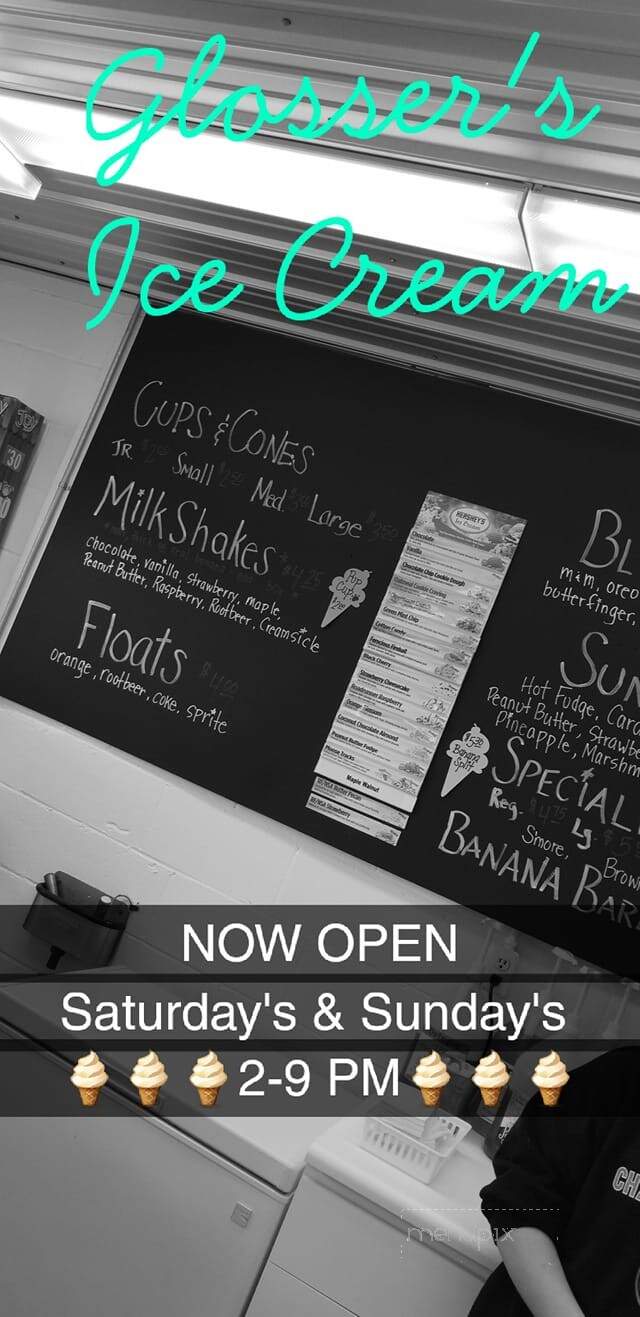 Glosser's
Ice Cream
CUPS & CONES
JR Small Med. Large
MilkShakes $4.25
chocolate, vanilla, strawberry, maple,
Peanut Butter, Raspberry, Rootbeer, Creamsicle
Pup
Cups
Floats $4.00
orange, rootbeer, coke, sprite
HERSHEY'S
Ice Cream
Chocolate
Vanilla
Chocolate Chip Cookie Dough
Green Mint Chip
Cotton Candy
Ferocious Fireball
Black Cherry
Strawberry Cheesecake
Roadrunner Raspberry
Coconut Chocolate Almond
Peanut Butter Fudge
Moose Tracks
Maple Walnut
BL
m&m, oreo
butterfinger,
SUN
Hot Fudge, Car
Peanut Butter, Strawbe
Pineapple, Marshm
Banana
Split
SPECIAL
Reg. $4.75 Lg. $5
S'more, Brow
BANANA BAR
NOW OPEN
Saturday's & Sunday's
🍦🍦🍦2-9 PM🍦🍦🍦
menupix